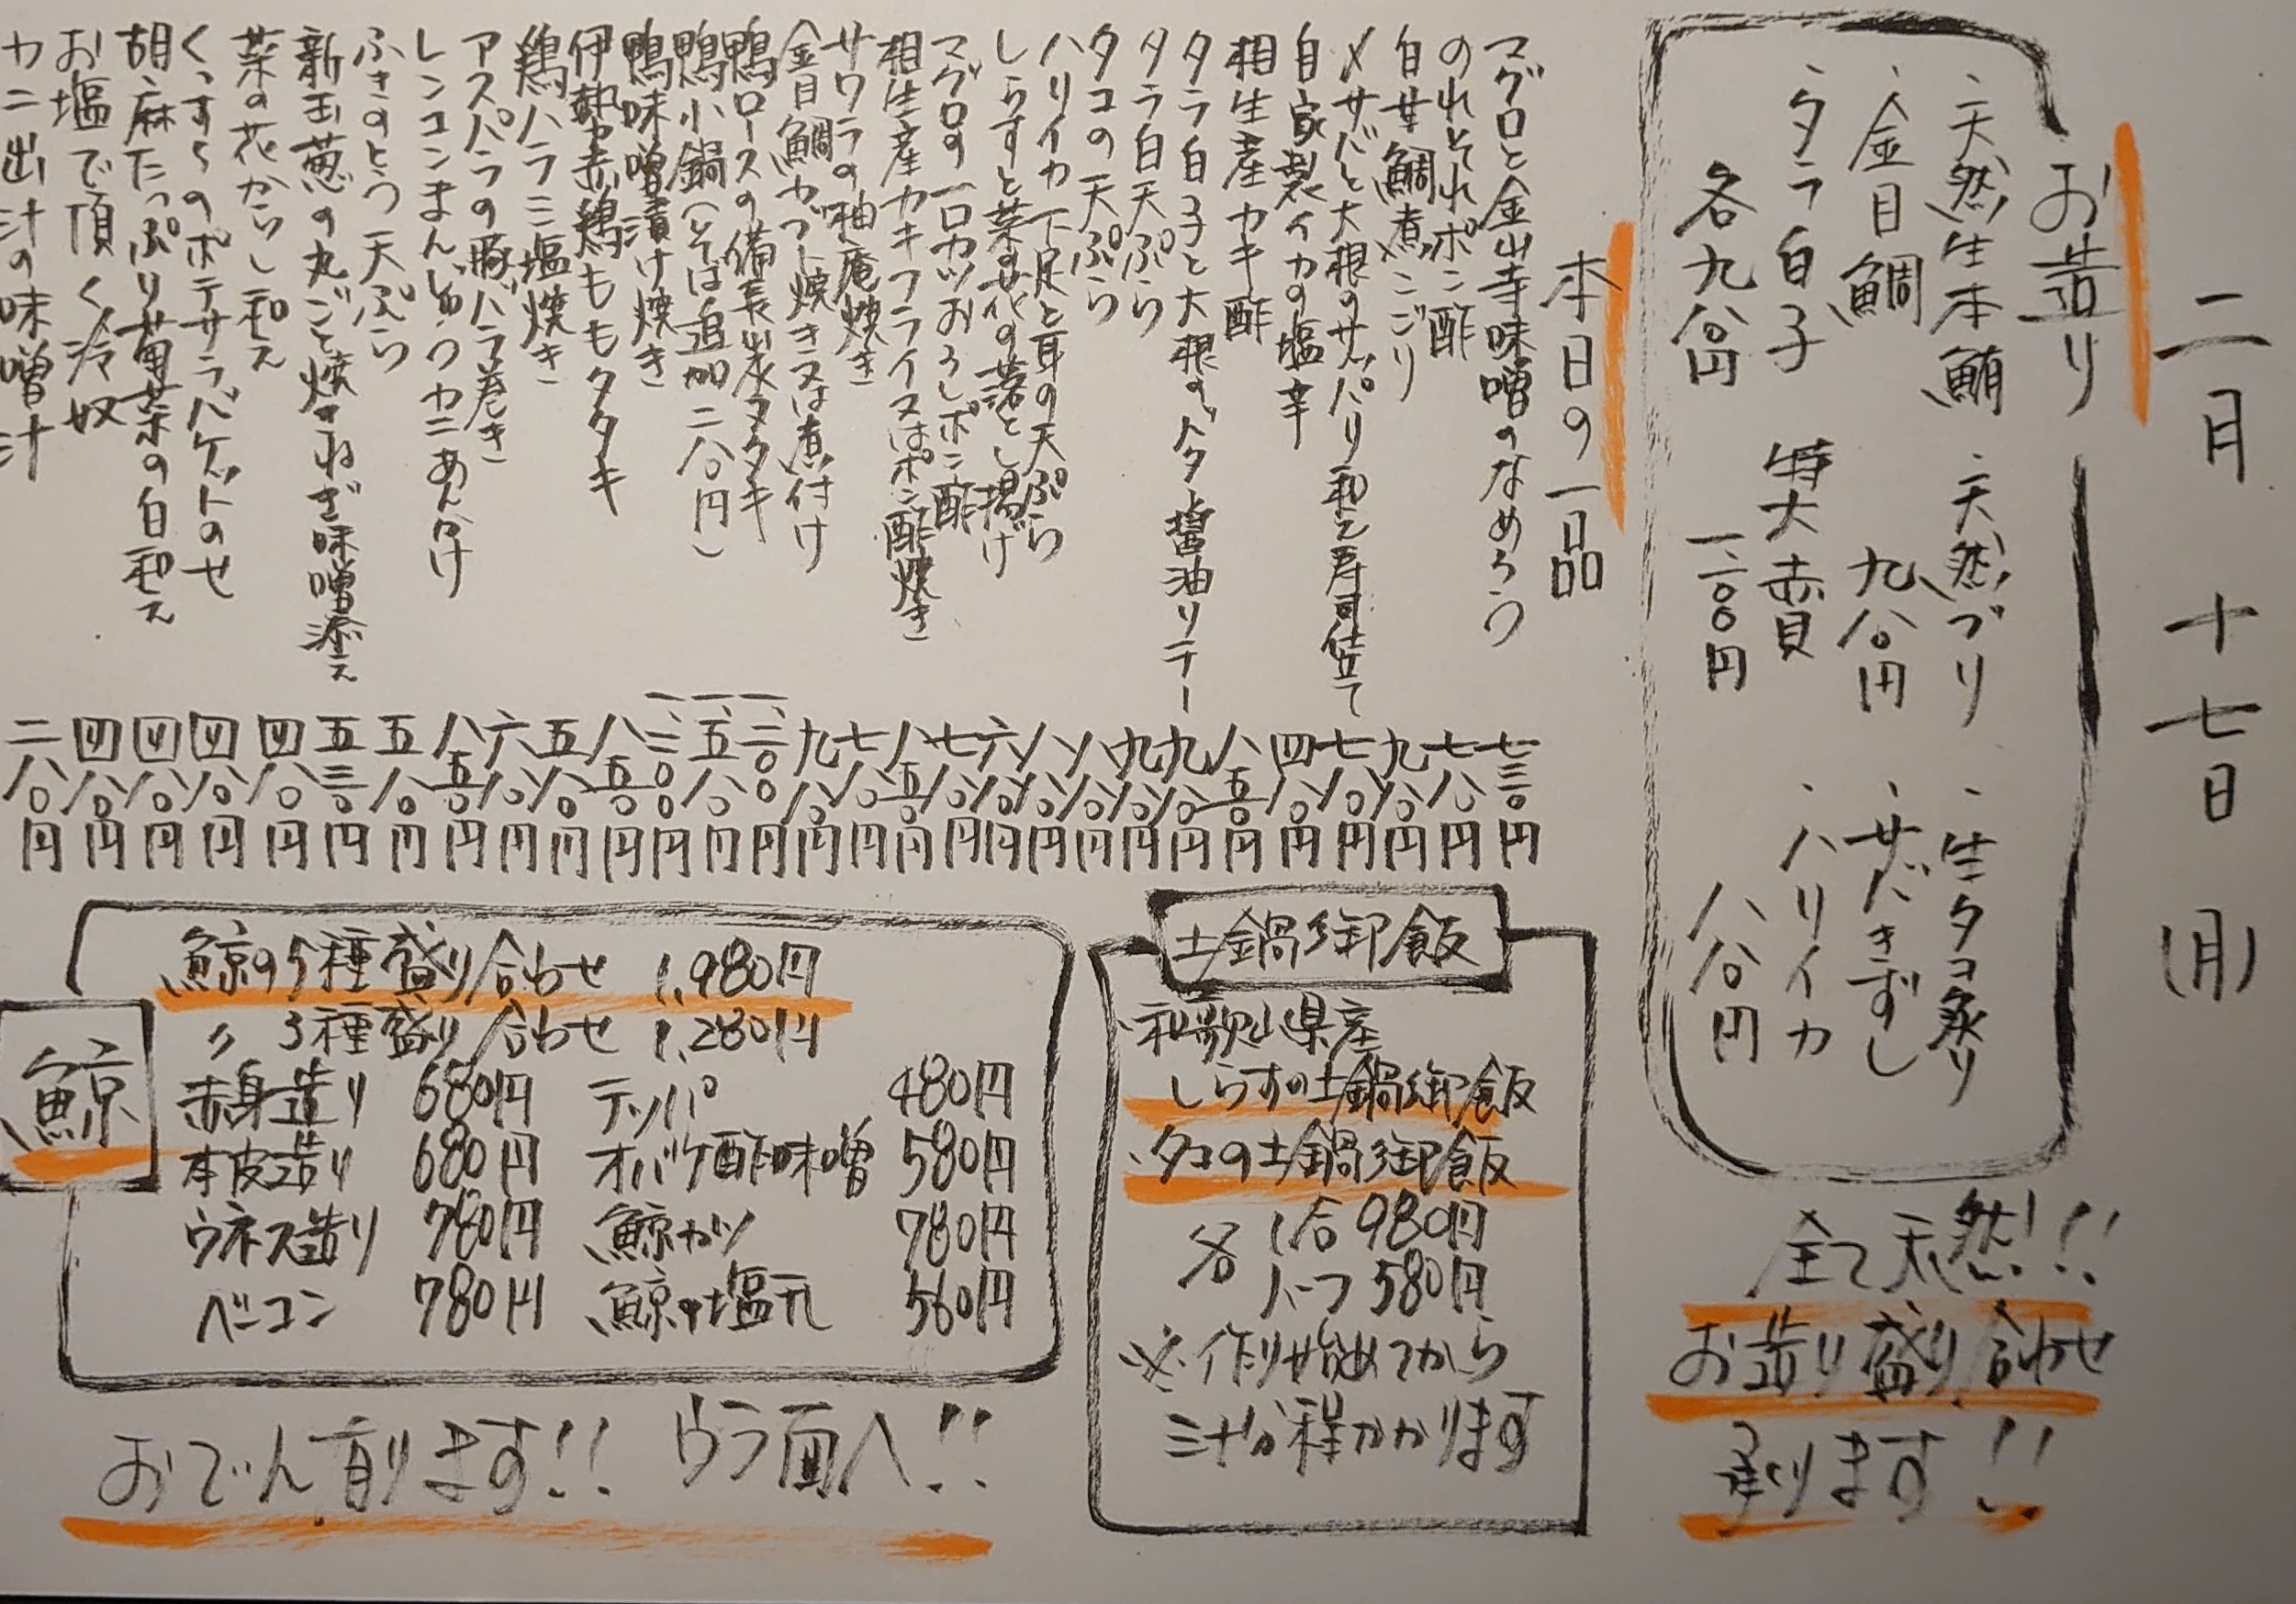 二月十七日(月)
お造り
、天然生本鮪 、天然ブリ 、生タコ炙り
、金目鯛 九八〇円 、サバきずし
、タラ白子 特大赤貝 、ハリイカ
各九八〇円 一、二〇〇円 八八〇円
全て天然!!
お造り盛り合わせ
承ります!!
本日の一品
マグロと金山寺味噌のなめろう 七三〇円
のれそれポン酢 七八〇円
自家鯛煮こごり
〆サバと大根のサッパリ和え寿司仕立て 七八〇円
自家製イカの塩辛 四八〇円
相生産カキ酢 八五〇円
タラ白子と大根のバター醤油ソテー 九八〇円
タラ白天ぷら 九八〇円
タコの天ぷら 八八〇円
ハリイカ下足と耳の天ぷら 八八〇円
しらすと菜の花の落とし揚げ 六八〇円
マグロの一口カツおろしポン酢 七八〇円
相生産カキフライ又はポン酢焼き 八五〇円
サワラの柚庵焼き 七八〇円
金目鯛カブト焼き又は煮付け 九八〇円
鴨ロースの備長炭タタキ 一、三〇〇円
鴨小鍋(そば追加二八〇円) 一、五八〇円
鴨味噌漬け焼き
伊勢赤鶏ももタタキ 八五〇円
鶏ハラミ塩焼き 五八〇円
アスパラの豚バラ巻き 六八〇円
レンコンまんじゅうカニあんかけ 八五〇円
ふきのとう天ぷら 五八〇円
新玉葱の丸ごと焼きねぎ味噌添え 五三〇円
菜の花からし和え 四八〇円
くんすものポテサラバケットのせ 四八〇円
胡麻たっぷり菊菜の白和え 四八〇円
お塩で頂く冷奴 四八〇円
カニ出汁の味噌汁 二八〇円
土鍋御飯
、和歌山県産
しらすの土鍋御飯
、タコの土鍋御飯
各 1合 980円
ハーフ 580円
※作り始めてから
三十分程かかります
鯨
鯨の5種盛り合わせ 1,980円
〃 3種盛り合わせ 1,280円
赤身造り 680円 テッパ 480円
本皮造り 680円 オバケ酢味噌 580円
ウネス造り 780円 鯨カツ 780円
ベーコン 780円 鯨の塩 560円
おでん有ります!! ウラ面へ!!